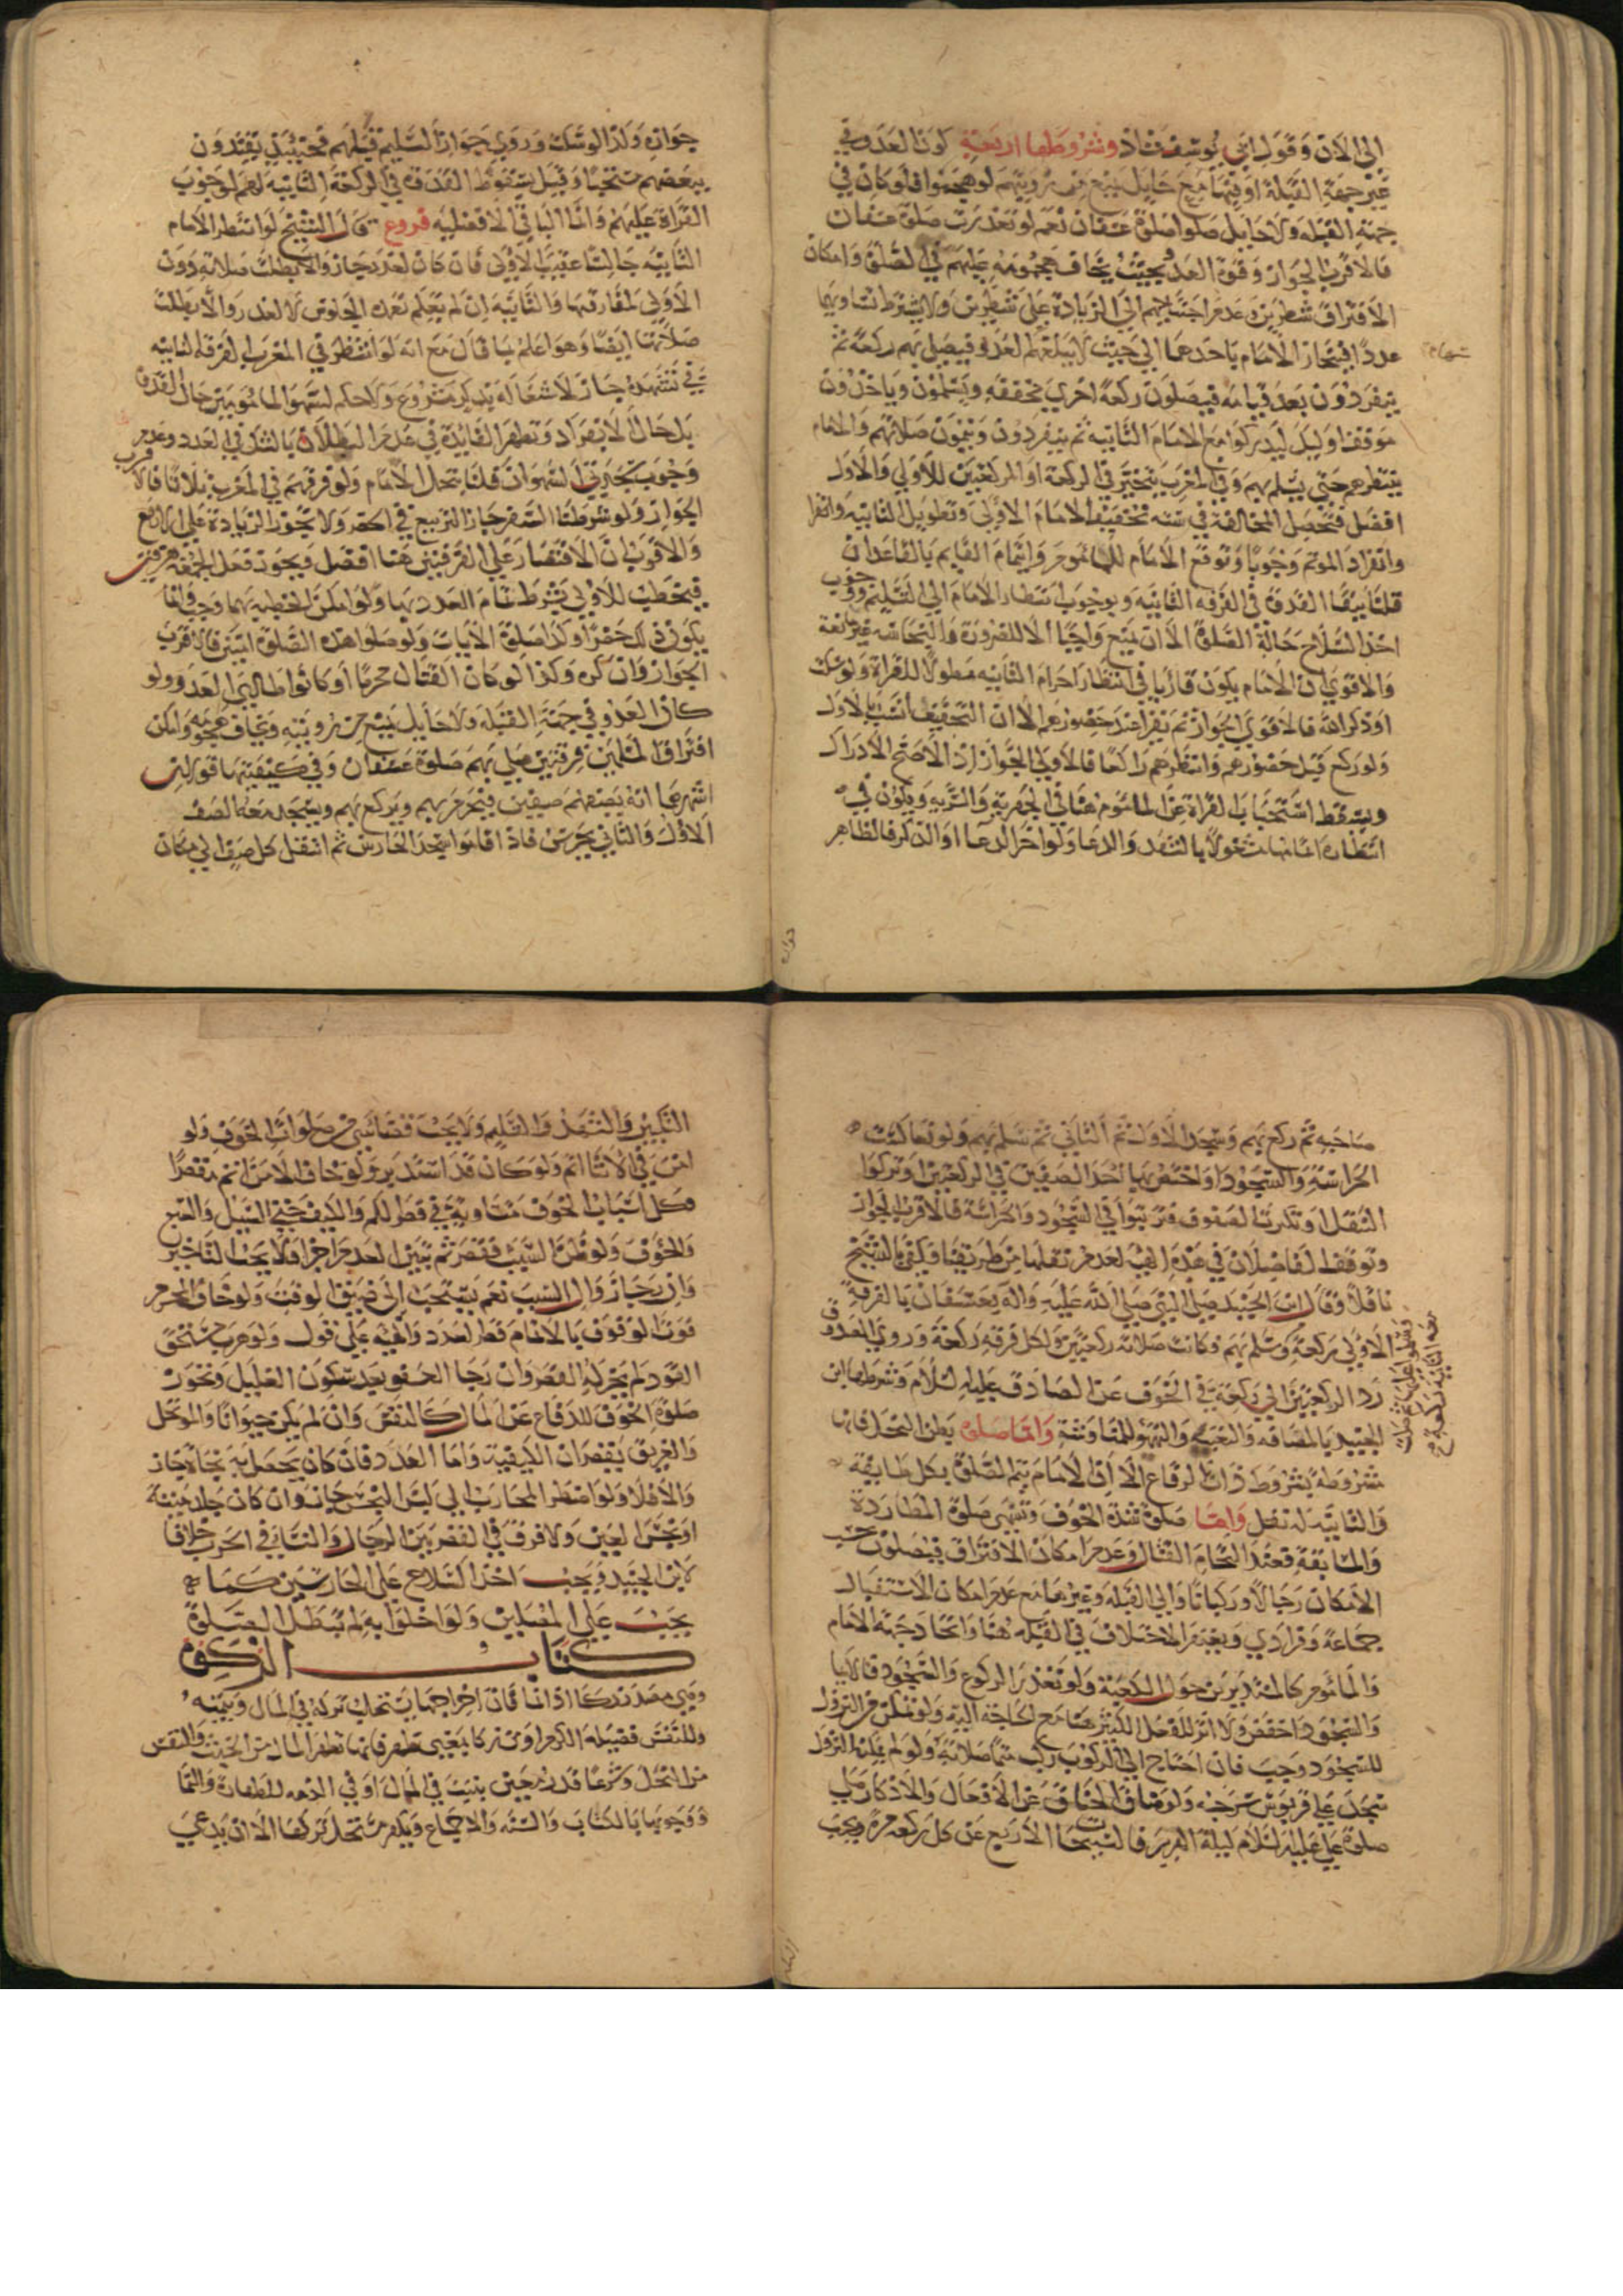 الي الان وقول ابي يوسف شاذ وشروطها اربعة كون العدو في
غير جهة القبلة او فيها مع حايل يمنع من رويتهم لو هجموا فلو كان في
جهة القبله ولا حايل صلوا صلوة عسفان نعم لو تعذرت صلوة عسفان
فالاقرب الجواز وقوة العدو بحيث يخاف هجومه عليهم في الصلوة وامكان
الافتراق شطرين وعدم احتياجهم الي الزيادة علي شطرين ولا يشترط تساويهما
عددا فينحاز الامام باحدهما الي حيث لا يبلغهم العدو فيصلي بهم ركعة ثم
ينفردون بعد قيامه فيصلون ركعة اخري مخففة ويسلمون وياخذون
موقف اوليك ليدركوا مع الامام الثانيه ثم ينفردون ويتمون صلاتهم والامام
ينتظرهم حتي يسلم بهم وفي المغرب يتخير في الركعة او الركعتين للاولي والاول
افضل فتحصل المخالفة في سته تخفيف الامام الاولي وتطويل الثانيه
وانفراد الموتم وجوبا وتوقع الامام للماموم وايتمام القايم بالقاعد ان
قلنا ببقا القدوة في الفرقه الثانيه وبوجوب انتظار الامام الي التسليم ووجوب
اخذ السلاح حالة الصلوة الا ان يمنع واجبا الا للضرورة والنجاسه غير مانعة
والاقوي ان الامام يكون قاريا في انتظار احرام الثانيه مطولا للقراة ولو سكت
او ذكر الله فالاقوي الجواز ثم يقرا عند حضورهم الا ان التخفيف انسب بالاول
ولو ركع قبل حضورهم وانتظرهم راكعا فالاولي الجواز اذ الاصح الادراك
ويسقط استحبابا القراة عن الماموم هنا في الجهرية والسرية ويكون في
انتظاره اتمامها مشغولا بالتشهد والدعا ولو اخر الدعا او الذكر فالظاهر
جوازه وكذا لو سكت وروي جواز التسليم قبلهم فحينئذ يقتدون
ببعضهم مستحبا وقيل بسقوط القدوة في الركعة الثانيه لهم لوجوب
القراة عليهم وانما الباقي الافضليه فروع قال الشيخ لو انتظر الامام
الثانيه جالسا عقيب الاولي فان كان لعذر جاز والا بطلت صلاته دون
الاولي لمفارقتها والثانيه ان لم يعلم تعمد الجلوس لا لعذر والا بطلت
صلاتها ايضا وهو اعلم بما قال مع انه لو انتظر في المغرب الفرقة الثانيه
في تشهده جاز لاشتغاله بذكر مشروع ولا حكم لسهو المامومين حال القدوة
بل حال الانفراد وتظهر الفايدة في عدم البطلان بالشك في العدد وعدم
وجوب سجدتي السهو ان قلنا بتحمل الامام ولو فرقهم في المغرب ثلاثا فالاقرب
الجواز ولو شرطنا السفر جاز التربيع في الحضر ولا تجوز الزيادة علي الاربع
والاقرب ان الاقتصار علي الفرقتين هنا افضل ويجوز فعل الجمعة
فيخطب للاولي بشرط تمام العدد بها ولو امكن الخطبه بهما وجب وانما
يكون ذلك حضرا وكذا صلوة الايات ولو صلوا هذه الصلوة امنين فالاقرب
الجواز وان كره وكذا لو كان القتال محرما او كانوا طالبي العدو ولو
كان العدو في جهة القبله ولا حايل يمنع من رويته ويخاف هجومه وامكن
افتراق المسلمين فرقتين صلي بهم صلوة عسفان وفي كيفيتها قولان
اشهرهما انه يصفهم صفين فيحرم بهم ويركع بهم ويسجد معه الصف
الاول والثاني يحرس فاذا قاموا سجد الحارس ثم انتقل كل صف الي مكان
صاحبه ثم ركع بهم وسجد الاول ثم الثاني ثم سلم بهم ولو تعاكست
الحراسة والسجود او اختص بها احد الصفين في الركعتين او تركوا
التنقل او تكثرت الصفوف فترتبوا في السجود والحراسة فالاقرب الجواز
وتوقف الفاضلان في هذه الهيئة لعدم نقلها من طريقنا وكفي بالشيخ
ناقلا وقال ابن الجنيد صلي النبي صلي الله عليه واله بعسفان بالفرقة
الاولي ركعة وسلم بهم فكانت صلاته ركعتين ولكل فرقة ركعة وروي العدو
رد الركعتين الي ركعة في الخوف عن الصادق عليه السلام وشرطها ابن
الجنيد بالمصافه والتعبية والتهيو للمناوشة واما صلوة بطن النخل فانها
مشروطة بشروط ذات الرقاع الا ان الامام يتم الصلوة بكل طايفة
والثانيه له نفل واما صلوة شدة الخوف وتسمي صلوة المطاردة
والمسايفة فعند التحام القتال وعدم امكان الافتراق فيصلون بحسب
الامكان رجالا وركبانا والي القبلة وغيرها مع عدم امكان الاستقبال
جماعة وفرادي ويغتفر الاختلاف في القبلة هنا واتحاد جهة الامام
والماموم كالمستديرين حول الكعبة ولو تعذر الركوع والسجود فالايما
والسجود اخفض ولا اثر للفعل الكثير هنا مع الحاجة اليه ولو تمكن من النزول
للسجود وجب فان احتاج الي الركوب ركب متما صلاته ولو لم يمكنه النزول
سجد علي قربوس سرجه ولو ضاق الخناق عن الافعال والاذكار صلي
صلوة علي عليه السلام ليلة الهرير فالتسبيحات الاربع عن كل ركعة مرة ويجب
التكبير والتشهد والتسليم ولا يجب قضا شي من صلوات الخوف ولو
امن في الاثنا اتم ولو كان قد استدبر ولو خاف الامن اتم مقصرا
وكل اسباب الخوف متساوية في قصر الكم والكيف حتي السيل والسبع
والخوف ولو ظن السبب فقصر ثم تبين العدم اجزا ولا يجب التاخير
وان رجا زوال السبب نعم يستحب الي ضيق الوقت ولو خاف المحرم
فوت الوقوف بالاتمام قصر العدد والهيئه علي قول ولو هرب مستحق
القود لم يجز له القصر وان رجا العفو بعد سكون الغليل وتجوز
صلوة الخوف للدفاع عن المال كالنفس وان لم يكن حيوانا والموتحل
والغريق يقصران الكيفية واما العدد فان كان يحصل به نجاة جاز
والا فلا ولو اضطر المحارب الي لبس النجس جاز وان كان جلد ميتة
او نجس العين ولا فرق في القصر بين الرجال والنسا في الحرب خلافا
لابن الجنيد ويجب اخذ السلاح علي الحارسين كما
يجب علي المصلين ولو اخلوا به لم تبطل الصلوة
كتاب الزكوة
وهي مصدر زكا اذا نما فان اخراجها يستجلب بركة في المال وينميه
وللنفس فضيلة الكرم او من زكا بمعني طهر فانها تطهر المال من الخبث والنفس
من البخل وشرعا قدر معين يثبت في المال او في الذمه للطهارة والنما
ووجوبها بالكتاب والسنه والاجماع ويكفر مستحل تركها الا ان يدعي